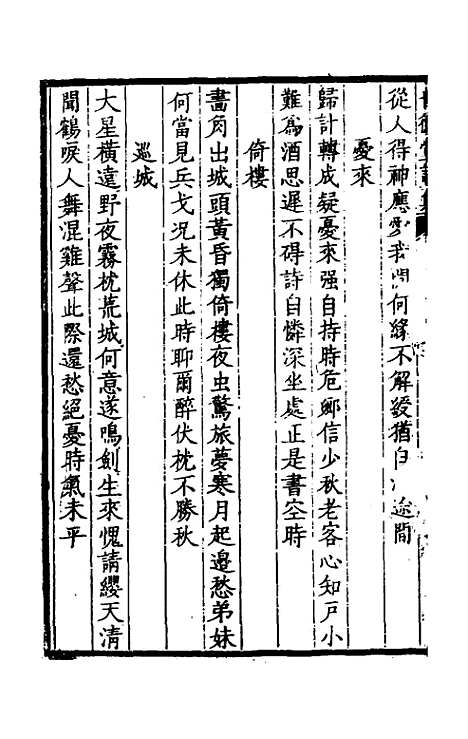 從人得神應我問何緣不解綬猶自途間
憂來
歸計轉成疑憂來强自持時危鄉信少秋老客心知戸小
難爲酒思遲不碍詩自憐深坐處正是書空時
倚樓
畫角出城頭黃昏獨倚樓夜虫驚旅夢寒月起邉愁弟妹
何當見兵戈况未休此時聊爾醉伏枕不勝秋
巡城
大星橫遠野夜霧枕荒城何意遂鳴劍生來愧請纓天清
聞鶴唳人舞混雞聲此際還愁絕憂時氣未平